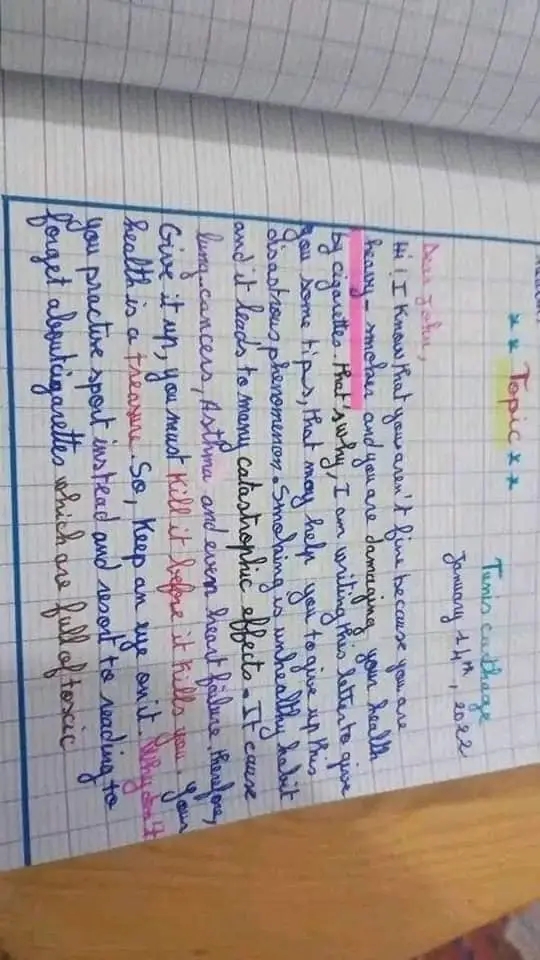 ** Topic **
Tunis carthage
January 14th, 2022
Dear John,
Hi! I Know that you aren't fine because you are
heavy-smoker and you are damaging your health
by cigarettes. that's why, I am writing this letter to give
you some tips, that may help you to give up this
disastrous phenomenon. Smoking is unhealthy habit
and it leads to many catastrophic effects. It cause
lung cancers, Asthma and even heart failure. therefore,
Give it up, you must Kill it before it Kills you. your
health is a treasure. So, Keep an eye on it. Why don't
you practise sport instead and resort to reading to
forget about cigarettes which are full of toxic